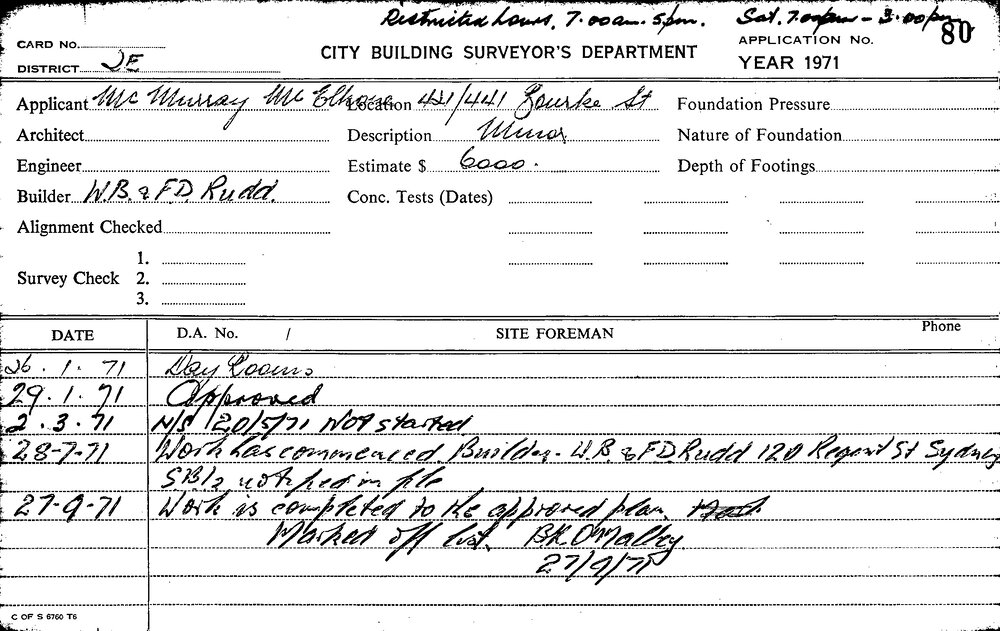 Restricted hours, 7.00am. 5pm. Sat. 7.00am - 3.00pm
CARD No. APPLICATION No. 80
CITY BUILDING SURVEYOR'S DEPARTMENT
DISTRICT 2E YEAR 1971
Applicant Mc Murray Mc Elhone Location 441 Bourke St Foundation Pressure
Architect Description Minor Nature of Foundation
Engineer Estimate $ 6000. Depth of Footings
Builder W.B. & F.D. Rudd. Conc. Tests (Dates)
Alignment Checked
1.
Survey Check 2.
3.
DATE D.A. No. / SITE FOREMAN Phone
26.1.71 Day Rooms
29.1.71 Approved
2.3.71 N/S 20/5/71 Not started
28-7-71 Work has commenced Builder - W.B. & F.D Rudd 120 Regent St Sydney
notified in file
27-9-71 Work is completed to the approved plan.
Marked off list. B.R.O'Malley
27/9/71
C OF S 6760 T6